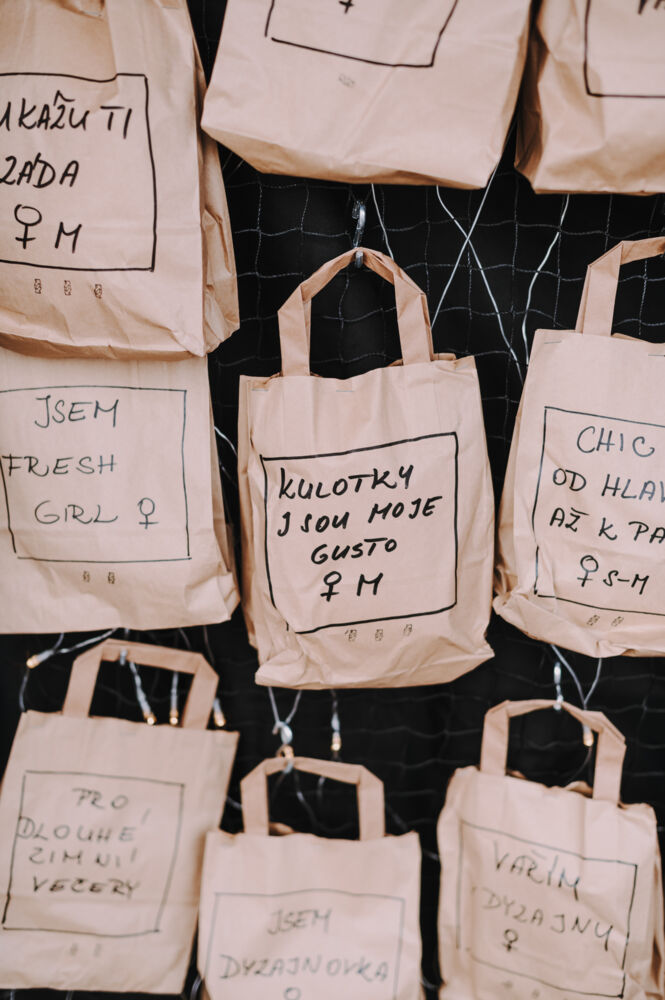 UKAŽU TI
ZÁDA
♀ M
JSEM
FRESH
GIRL ♀
KULOTKY
JSOU MOJE
GUSTO
♀ M
CHIC
OD HLAV
AŽ K PA
♀ S-M
PRO
DLOUHÉ
ZIMNÍ
VEČERY
JSEM
DYZAJNOVKA
♀
VAŘÍM
DYZAJNY
♀